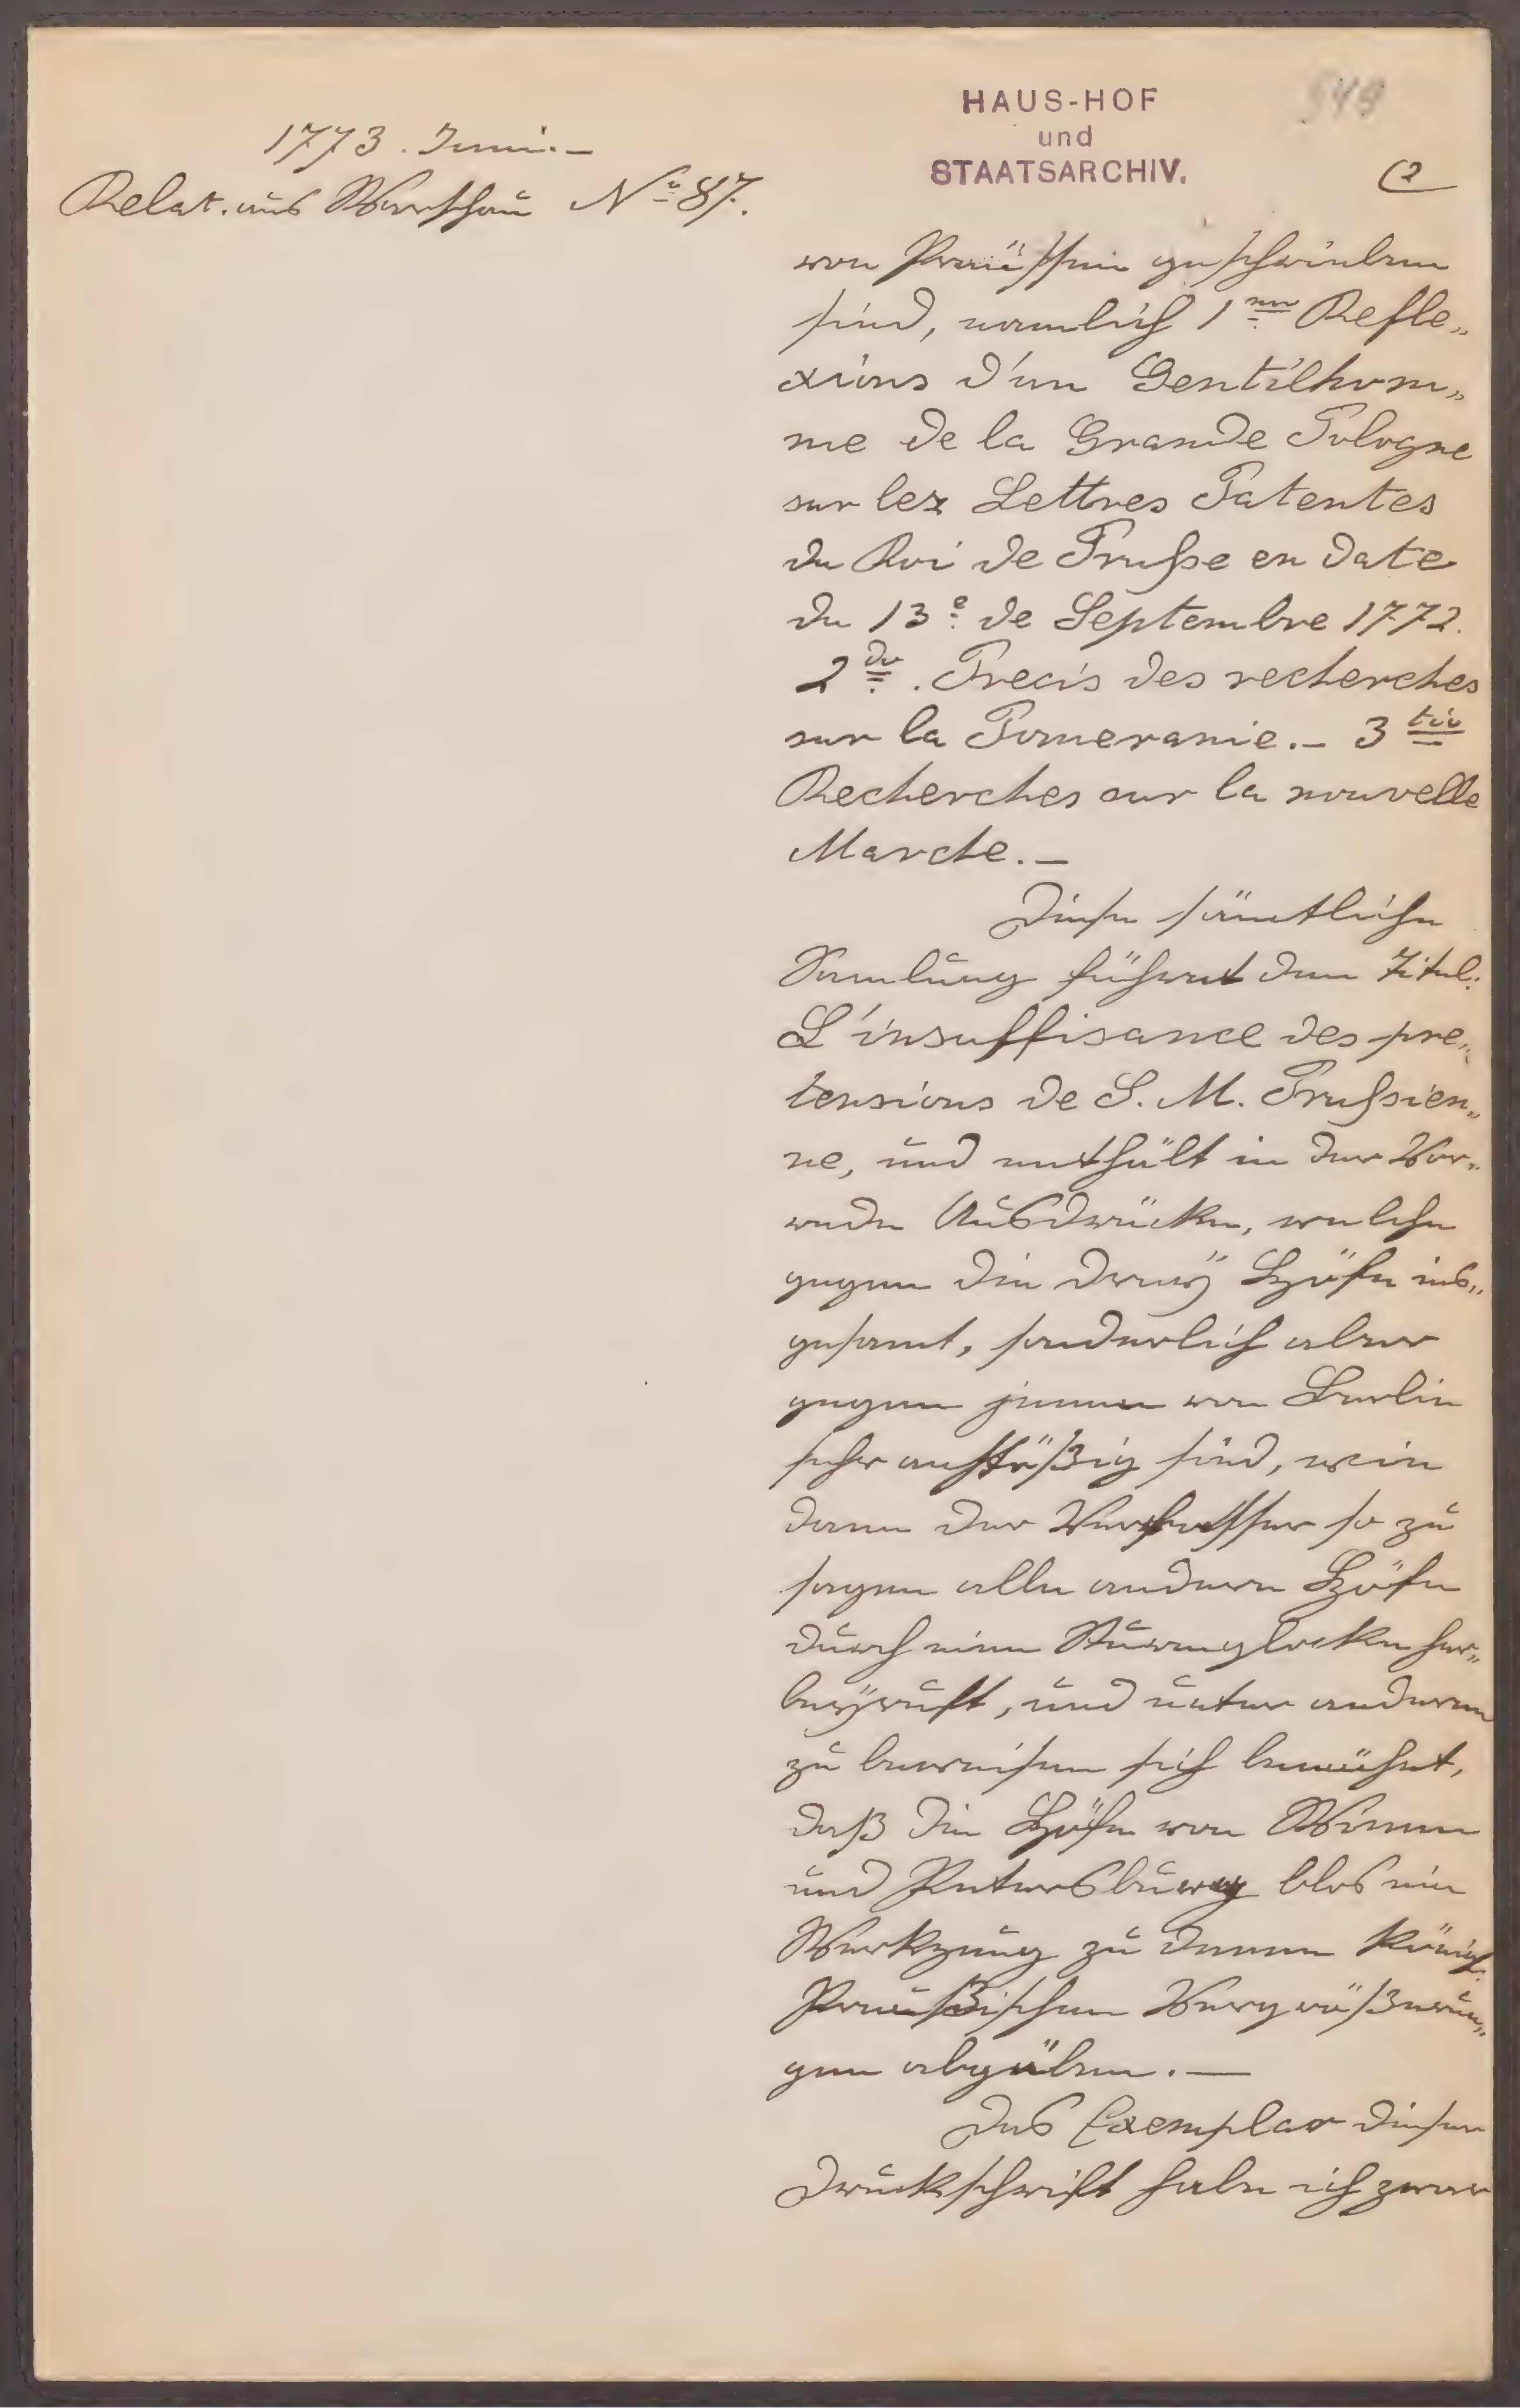 HAUS-HOF
und
STAATSARCHIV.
549
(2
1773. Juni.–
Relat. aus Warschau No 87.
von Preüssen geschrieben
sind, namlich 1mo Refle„
xions d'un Gentilhom„
me de la Grande Pologne
sur lez Lettres Patentes
du Roi de Prusse en date
du 13e de Septembre 1772.
2do. Precis des recherches
sur la Pomeranie.– 3tio
Recherches sur la nouvelle
Marche.–
Diese sämtliche
Samlung führet den Titul:
L'insuffisance des pre„
tensions de S. M. Prussien„
ne, und enthält in der Vor„
rede Ausdrücke, welche
gegen die dreÿ Höfe ins„
gesamt, sonderlich aber
gegen jenen von Berlin
sehr anstößig sind, wie
dann der Verfasser so zu
sagen alle andere Höfe
durch eine Sturmglocke her„
beÿruft, und unter anderen
zu beweisen sich bemühet,
daß die Höfe von Wienn
und Petersburg blos ein
Werkzeug zu denen König.
Preußischen Vergrößerun„
gen abgäben.—
Das Exemplar dieser
Druckschrift habe ich zwar